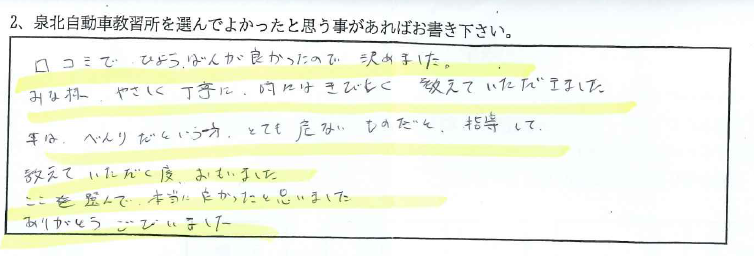 2、泉北自動車教習所を選んでよかったと思う事があればお書き下さい。
口コミで、ひょうばんが良かったので 決めました。
みな様、やさしく 丁寧に、時にはきびしく 教えていただきました
車は、べんりだという一方、とても 危ない ものだと、指導して、
教えて いただく度、おもいました
ここを 選んで、本当に良かったと思いました
ありがとう ございました